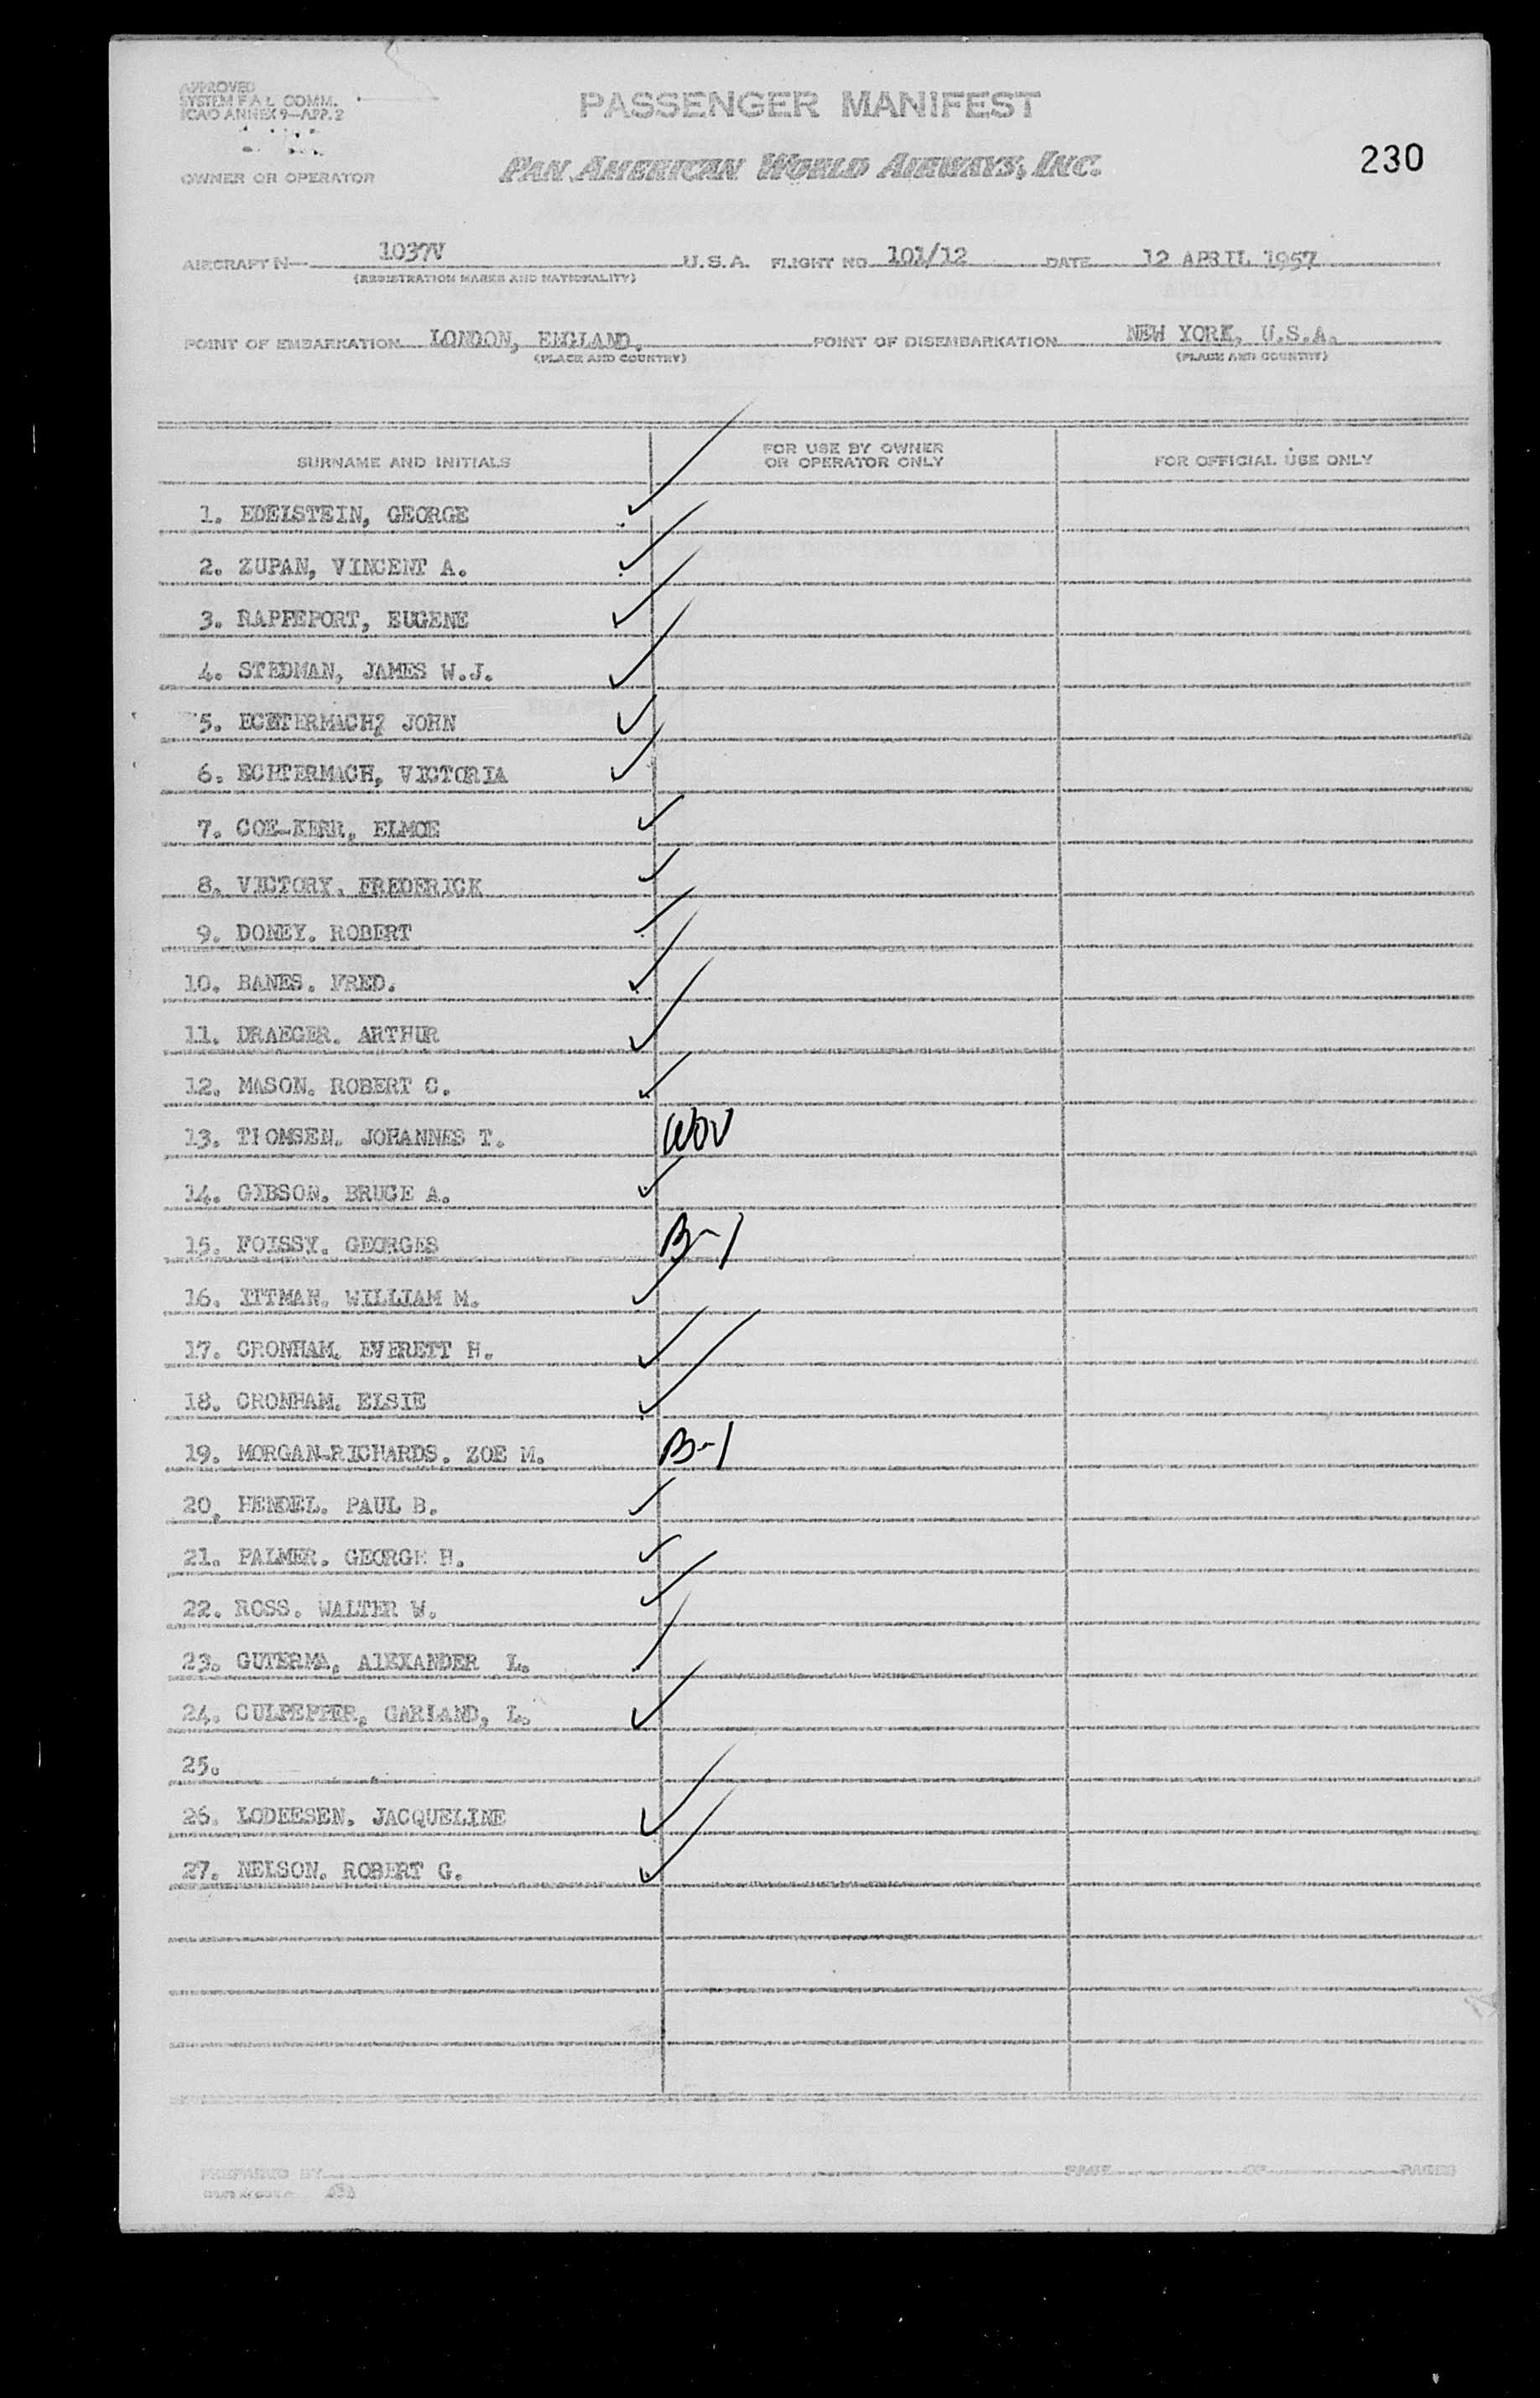 APPROVED
SYSTEM F A L COMM.
ICAO ANNEX 9—APP. 2
PASSENGER MANIFEST
OWNER OR OPERATOR
PAN AMERICAN WORLD AIRWAYS, INC.
230
AIRCRAFT N— 1037V U.S.A. FLIGHT NO 101/12 DATE 12 APRIL 1957
(REGISTRATION MARKS AND NATIONALITY)
POINT OF EMBARKATION LONDON, ENGLAND. POINT OF DISEMBARKATION NEW YORK, U.S.A.
(PLACE AND COUNTRY) (PLACE AND COUNTRY)
SURNAME AND INITIALS FOR USE BY OWNER OR OPERATOR ONLY FOR OFFICIAL USE ONLY
1. EDELSTEIN, GEORGE
2. ZUPAN, VINCENT A.
3. RAPPEPORT, EUGENE
4. STEDMAN, JAMES W.J.
5. ECHTERMACH, JOHN
6. ECHTERMACH, VICTORIA
7. COE-KERR, ELMOE
8. VICTORY. FREDERICK
9. DONEY. ROBERT
10. BANES. FRED.
11. DRAEGER. ARTHUR
12. MASON. ROBERT C.
13. THOMSEN. JOHANNES T. WOV
14. GIBSON. BRUCE A.
15. FOISSY. GEORGES B-1
16. WILLIAM M.
17. CRONHAM. EVERETT H.
18. CRONHAM. ELSIE
19. MORGAN-RICHARDS. ZOE M. B-1
20. HENDEL. PAUL B.
21. PALMER. GEORGE H.
22. ROSS. WALTER W.
23. GUTERMA, AlEXANDER L.
24. CULPEPPER, GARLAND, L.
25.
26. LODEESEN. JACQUELINE
27. NELSON. ROBERT G.
PREPARED BY PAGE OF PAGES